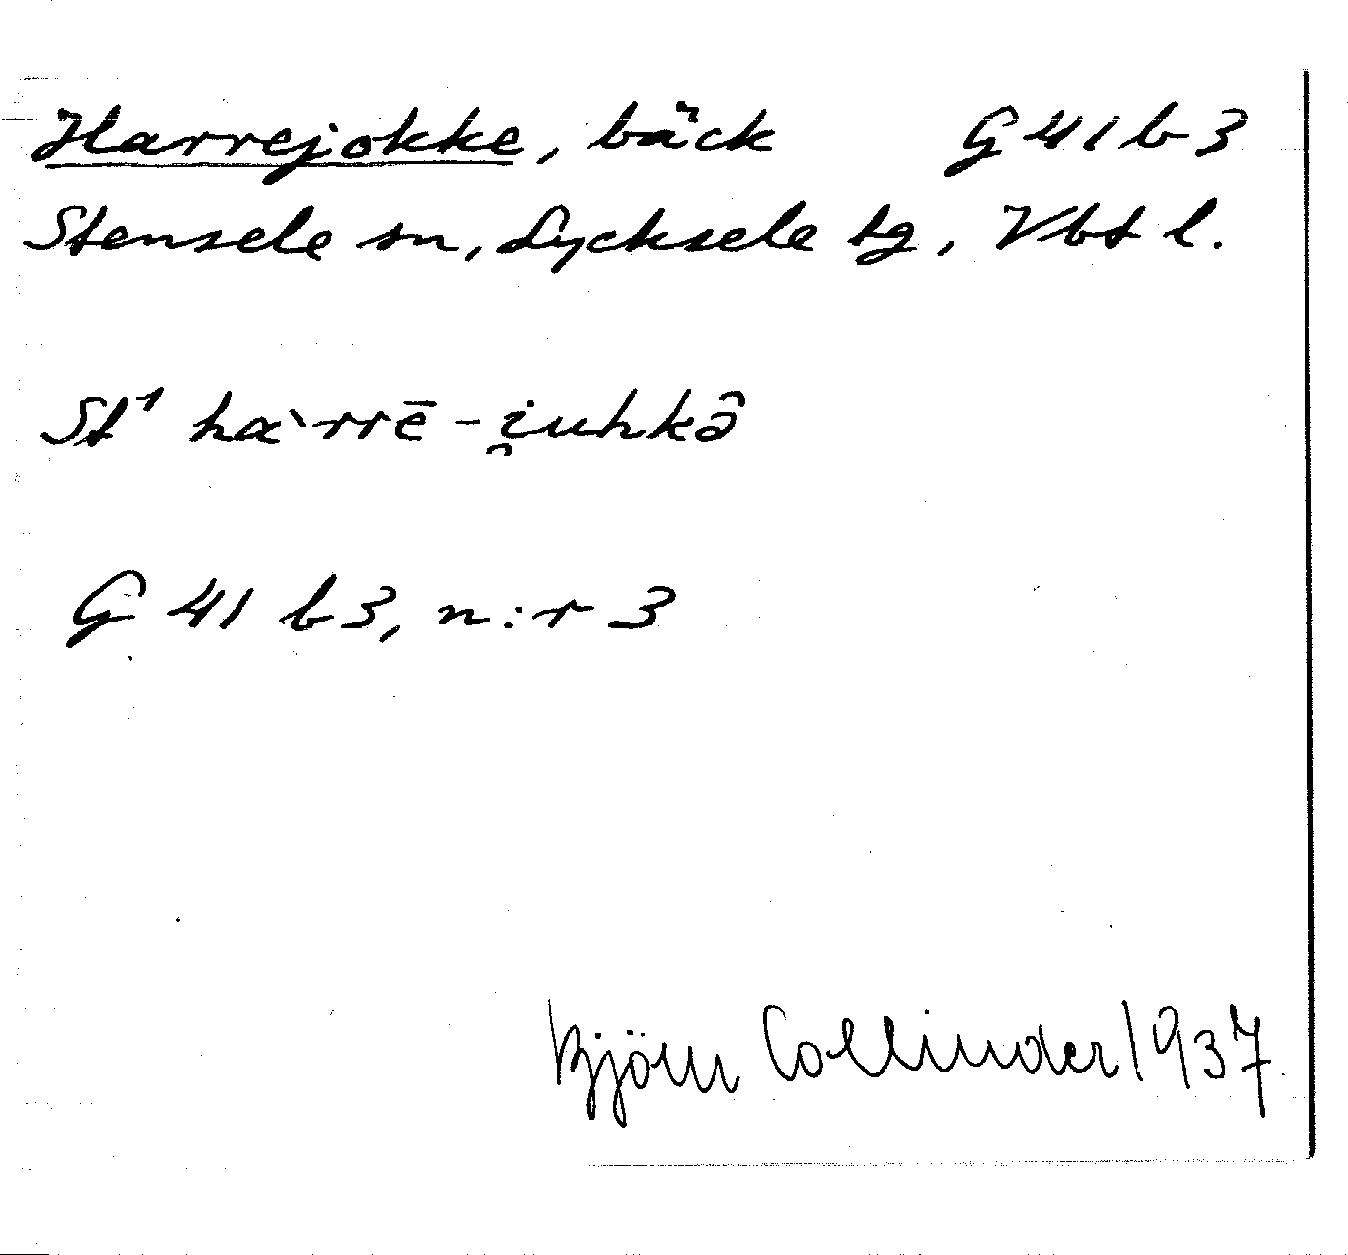 Harrejokke, bäck G 41 b 3
Stensele sn, Lycksele tg, Vbt l.
St¹ hαˋrrē-i̯uhkə̂
G 41 b 3, n:r 3
Björn Collinder 1937